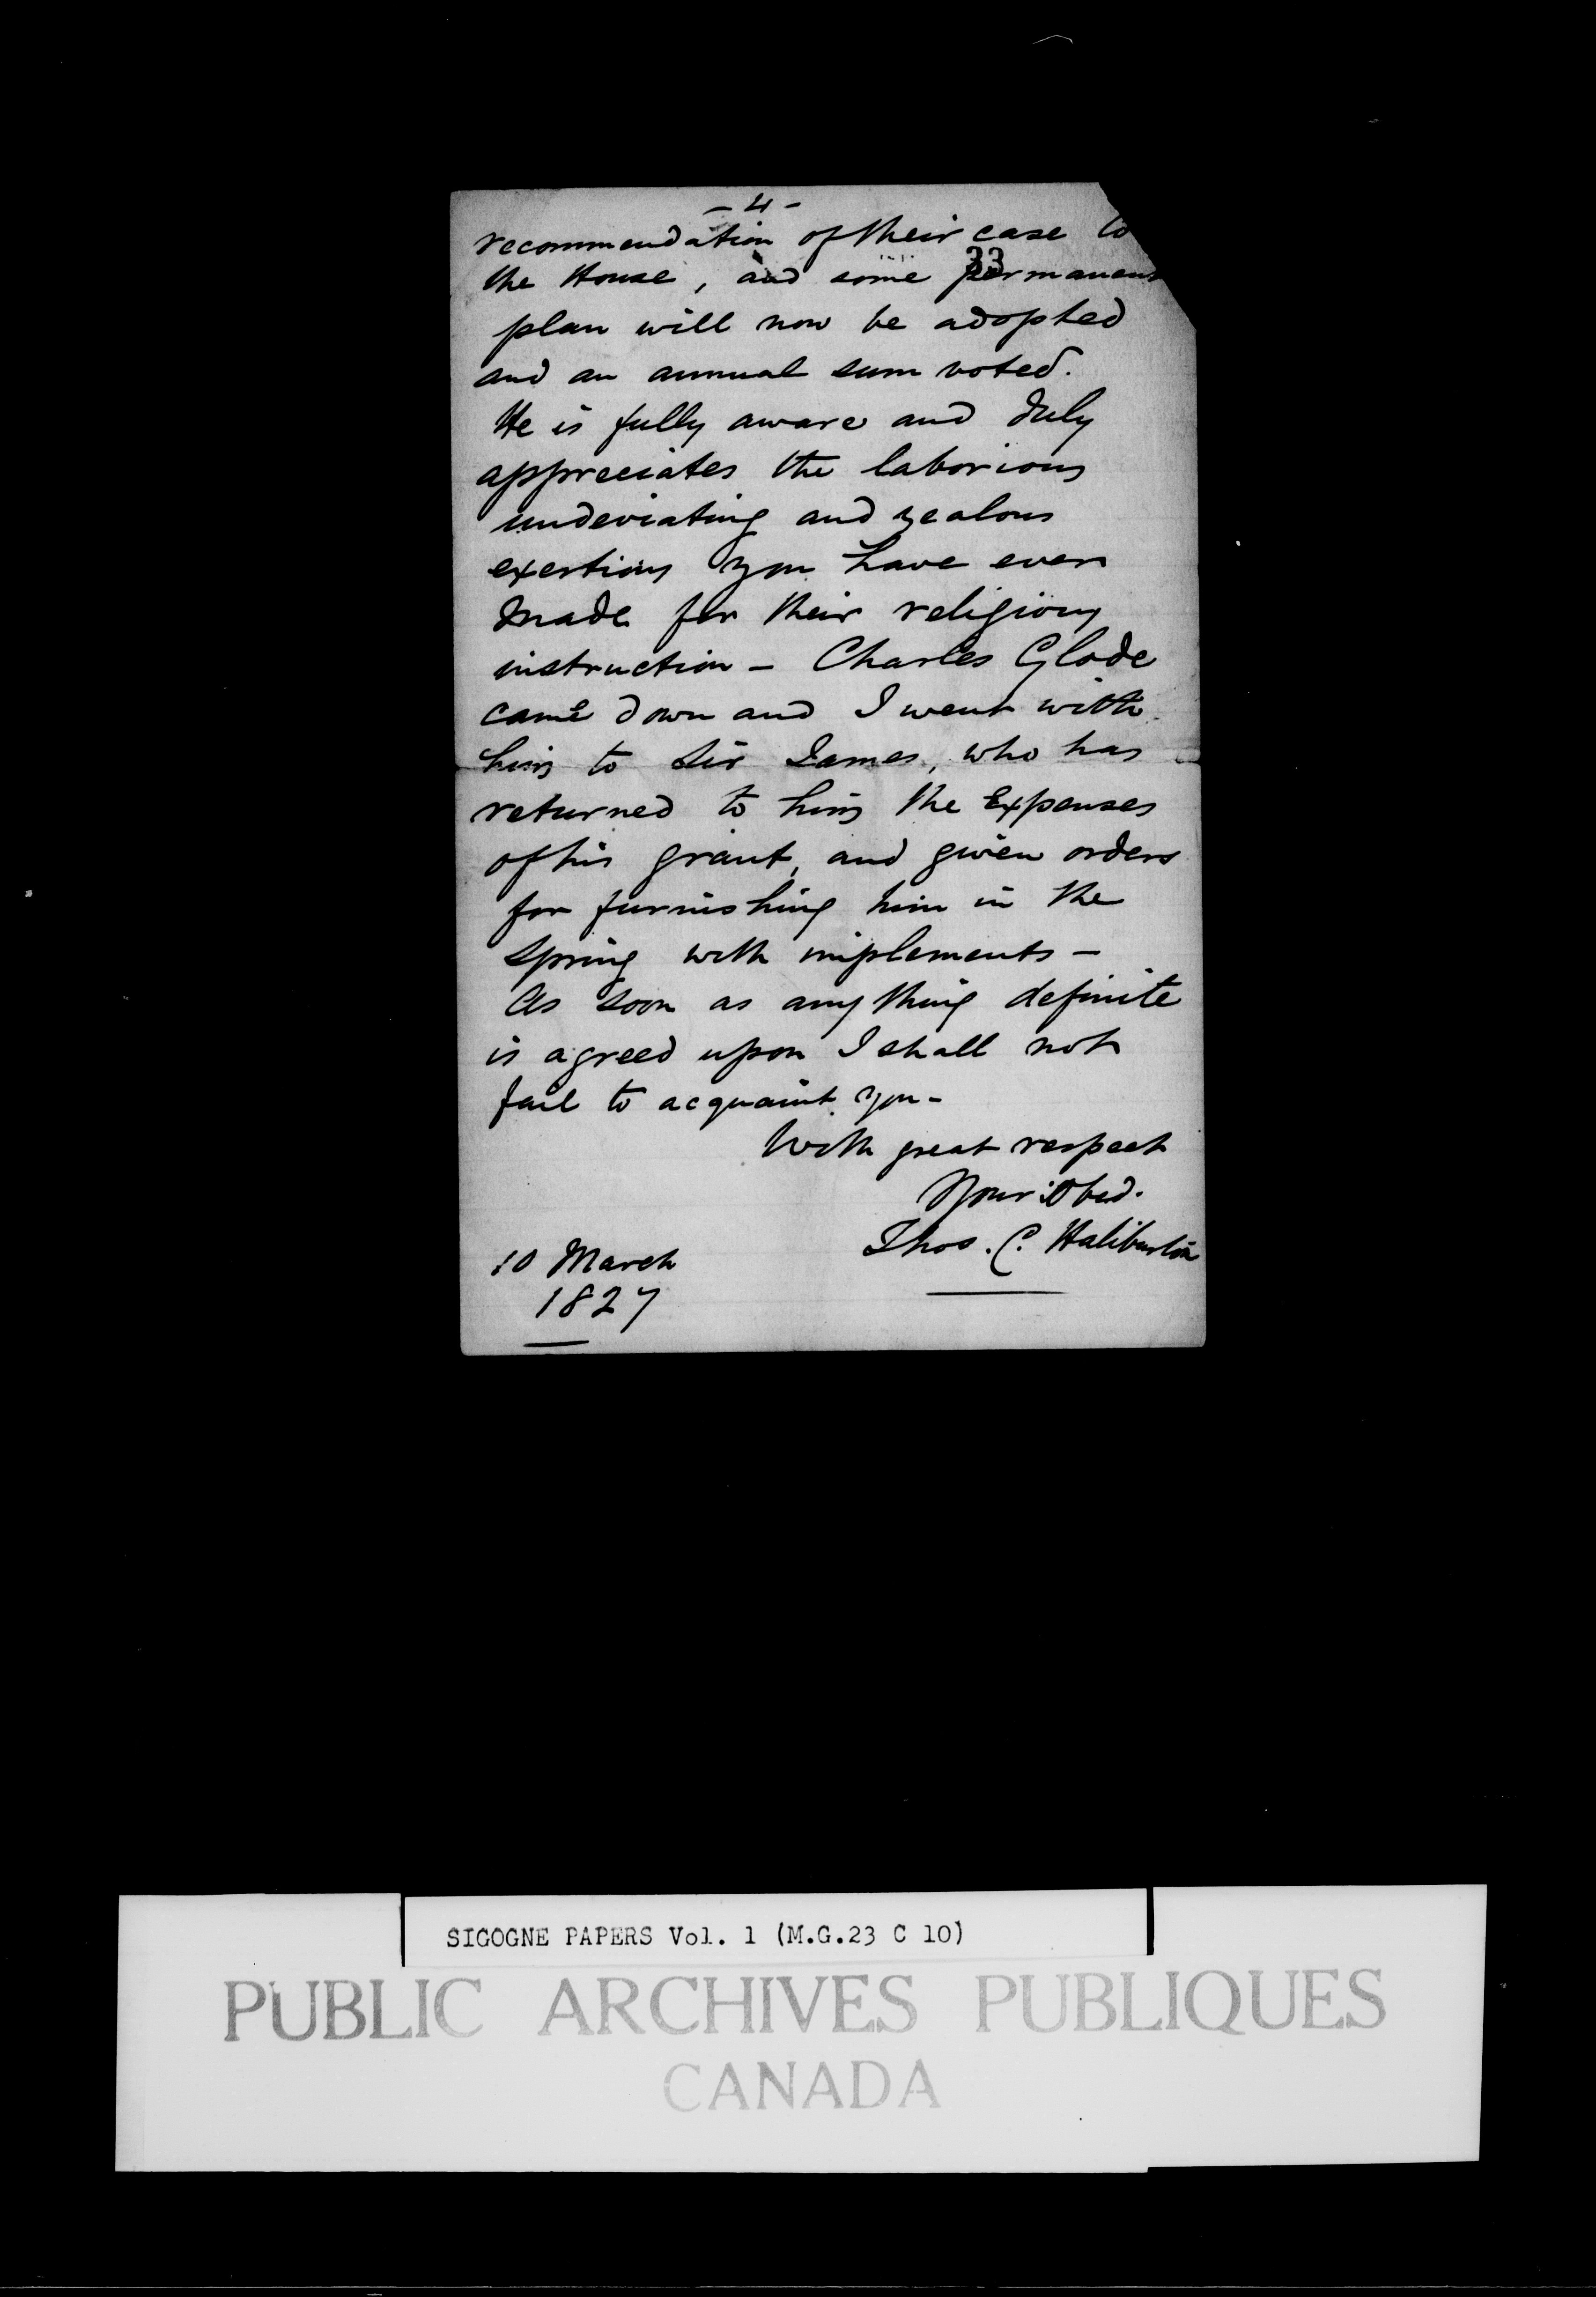 - 4 -
recommendation of their case to
33
the House, and some permanent
plan will now be adopted
and an annual sum voted.
He is fully aware and duly
appreciates the laborious
undeviating and zealous
exertions you have ever
made for their religious
instruction - Charles Glode
came down and I went with
him to Sir James, who has
returned to him the Expenses
of his grant, and given orders
for furnishing him in the
spring with implements -
As soon as any thing definite
is agreed upon I shall not
fail to acquaint you -
With great respect
Your Obed.
Thos. C. Haliburton
10 March
1827
SIGOGNE PAPERS Vol. 1 (M.G.23 C 10)
PUBLIC ARCHIVES PUBLIQUES
CANADA